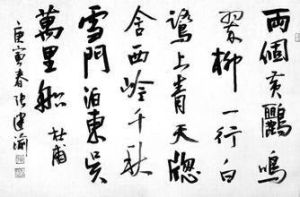 兩個黃鸝鳴
翠柳一行白
鷺上青天窗
含西岭千秋
雪門泊東吳
萬里船 杜甫
庚寅春张建